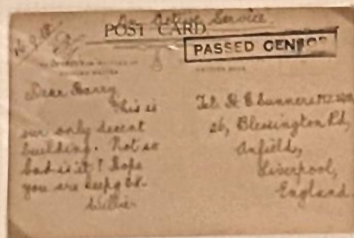 On Active Service.
POST CARD
PASSED CENSOR
Dear Harry
This is
our only decent
building. Not so
bad is it? Hope
you are keepg O.K.
Willie
26, Blessington Rd,
Anfield,
Liverpool,
England